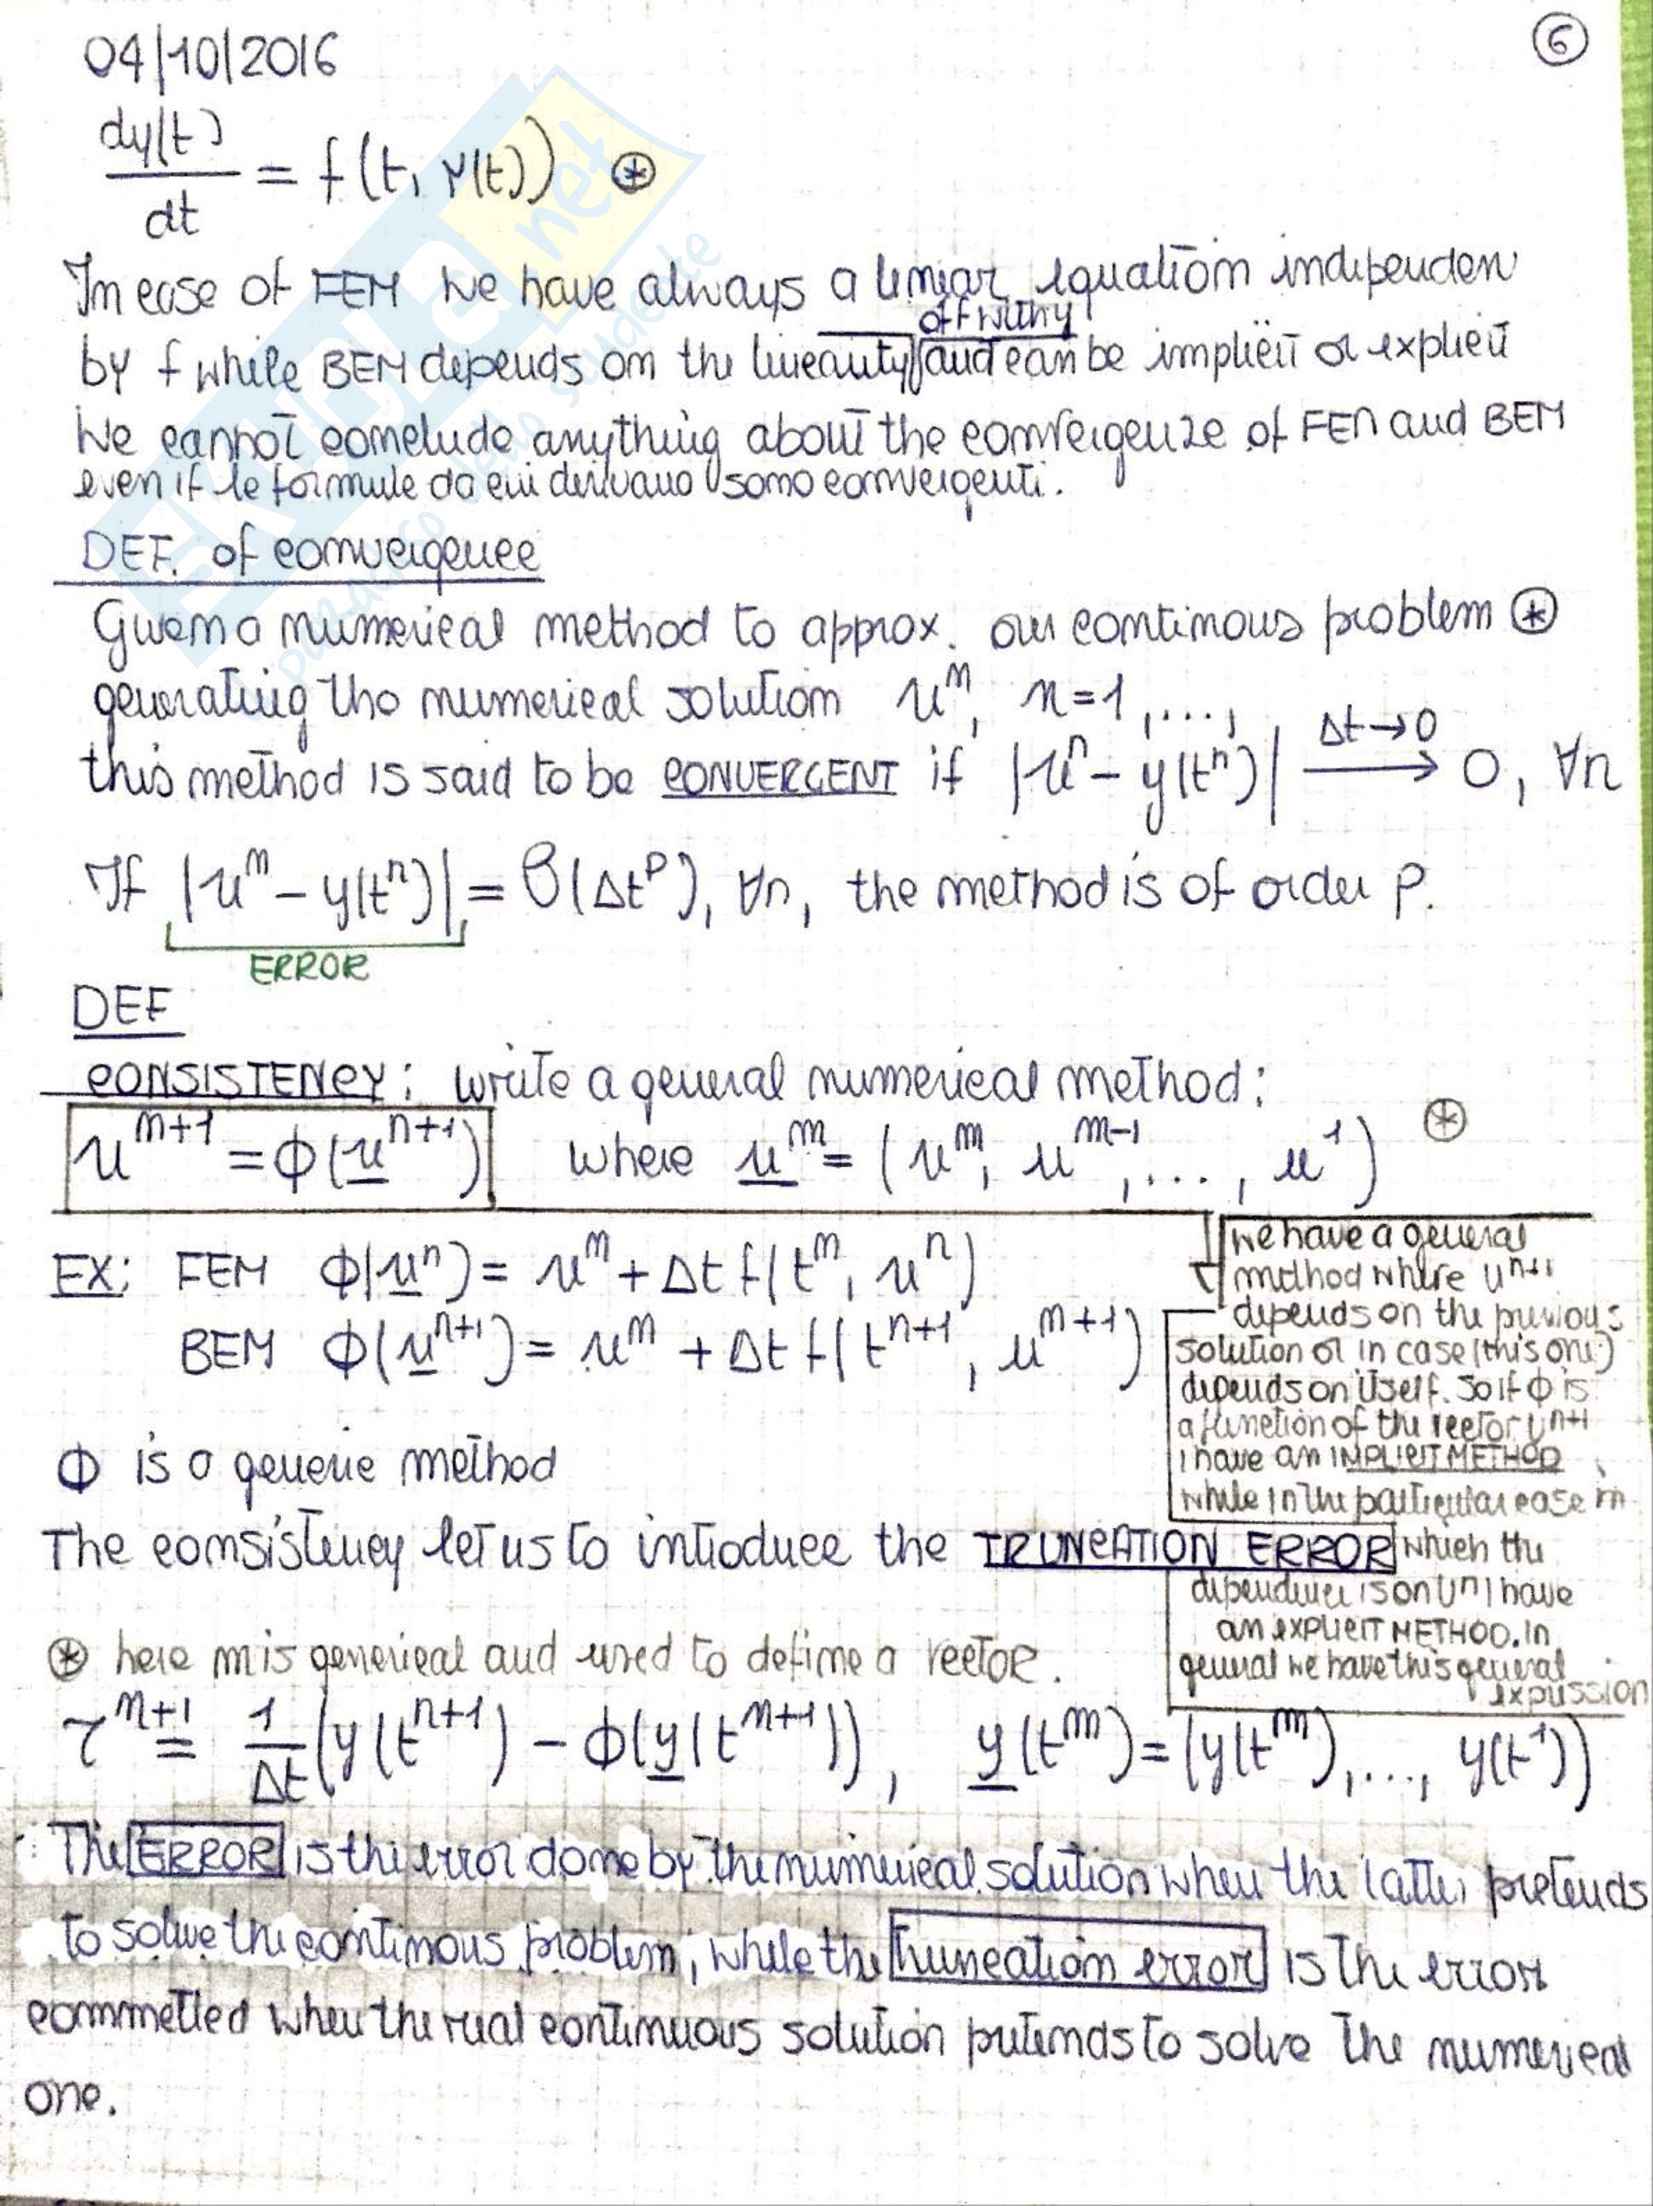 04/10/2016
6
dy(t)/dt = f(t, y(t)) ⊛
In case of FEM we have always a linear equation indipenden
by f while BEM depends on the linearity of f with y and can be implicit or explicit
We cannot conclude anything about the convergenze of FEM and BEM
even if le formule da cui derivano sono convergenti.
DEF. of convergence
Given a numerical method to approx. our continous problem ⊛
generating the numerical solution uⁿ, n=1,...,
this method is said to be CONVERGENT if |uⁿ - y(tⁿ)| →(Δt→0) 0, ∀n
If |uⁿ - y(tⁿ)| = O(Δtᵖ), ∀n, the method is of order p.
ERROR
DEF
CONSISTENCY: write a general numerical method:
uⁿ⁺¹ = ϕ(u̲ⁿ⁺¹) where u̲ᵐ = (uᵐ, uᵐ⁻¹, ..., u¹) ⊛
EX: FEM ϕ(u̲ⁿ) = uⁿ + Δt f(tⁿ, uⁿ)
BEM ϕ(u̲ⁿ⁺¹) = uⁿ + Δt f(tⁿ⁺¹, uⁿ⁺¹)
we have a general
method where uⁿ⁺¹
depends on the previous
solution or in case (this one)
depends on itself. So if ϕ is
a function of the vector uⁿ⁺¹
I have an IMPLICIT METHOD
while in the particular case in
which the
dependence is on uⁿ I have
an EXPLICIT METHOD. In
general we have this general
expression
ϕ is a generic method
The consistency let us to introduce the TRUNCATION ERROR
⊛ here m is generical and used to define a vector.
τⁿ⁺¹ = 1/Δt (y(tⁿ⁺¹) - ϕ(y̲(tⁿ⁺¹))), y̲(tᵐ) = (y(tᵐ), ..., y(t¹))
The ERROR is the error done by the numerical solution when the latter pretends
to solve the continous problem, while the truncation error is the error
commetted when the real continuous solution pretends to solve the numerical
one.